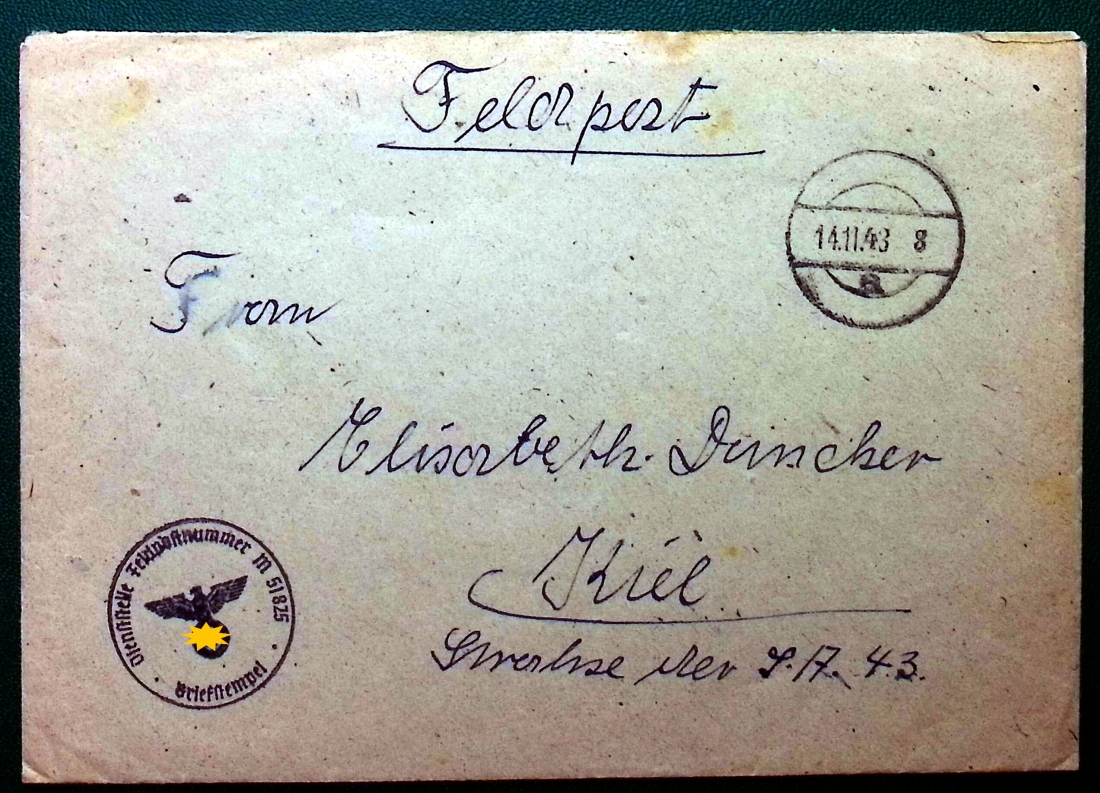 Feldpost
14.11.43 8
a
Frau
Elisabeth. Duncker
Kiel
Strasse der S.A. 43.
Dienststelle Feldpostnummer M 51825
Briefstempel